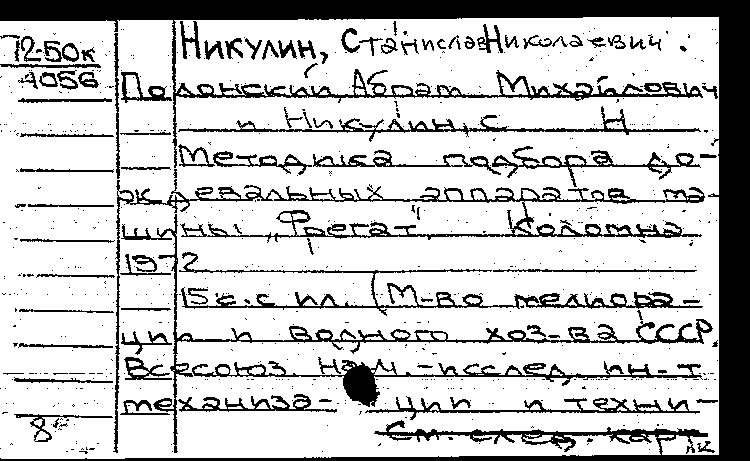 Никулин, Станислав Николаевич.
72-50к
4056
Полонский, Абрам Михайлович
и Никулин, С Н.
Методика подбора до-
ждевальных аппаратов ма-
шины „Фрегат". Коломна
1972
15 с. с ил. (М-во мелиора-
ции и водного хоз-ва СССР.
Всесоюз. науч.-исслед. ин-т
механиза- ции и техни-
8
См. след. карт